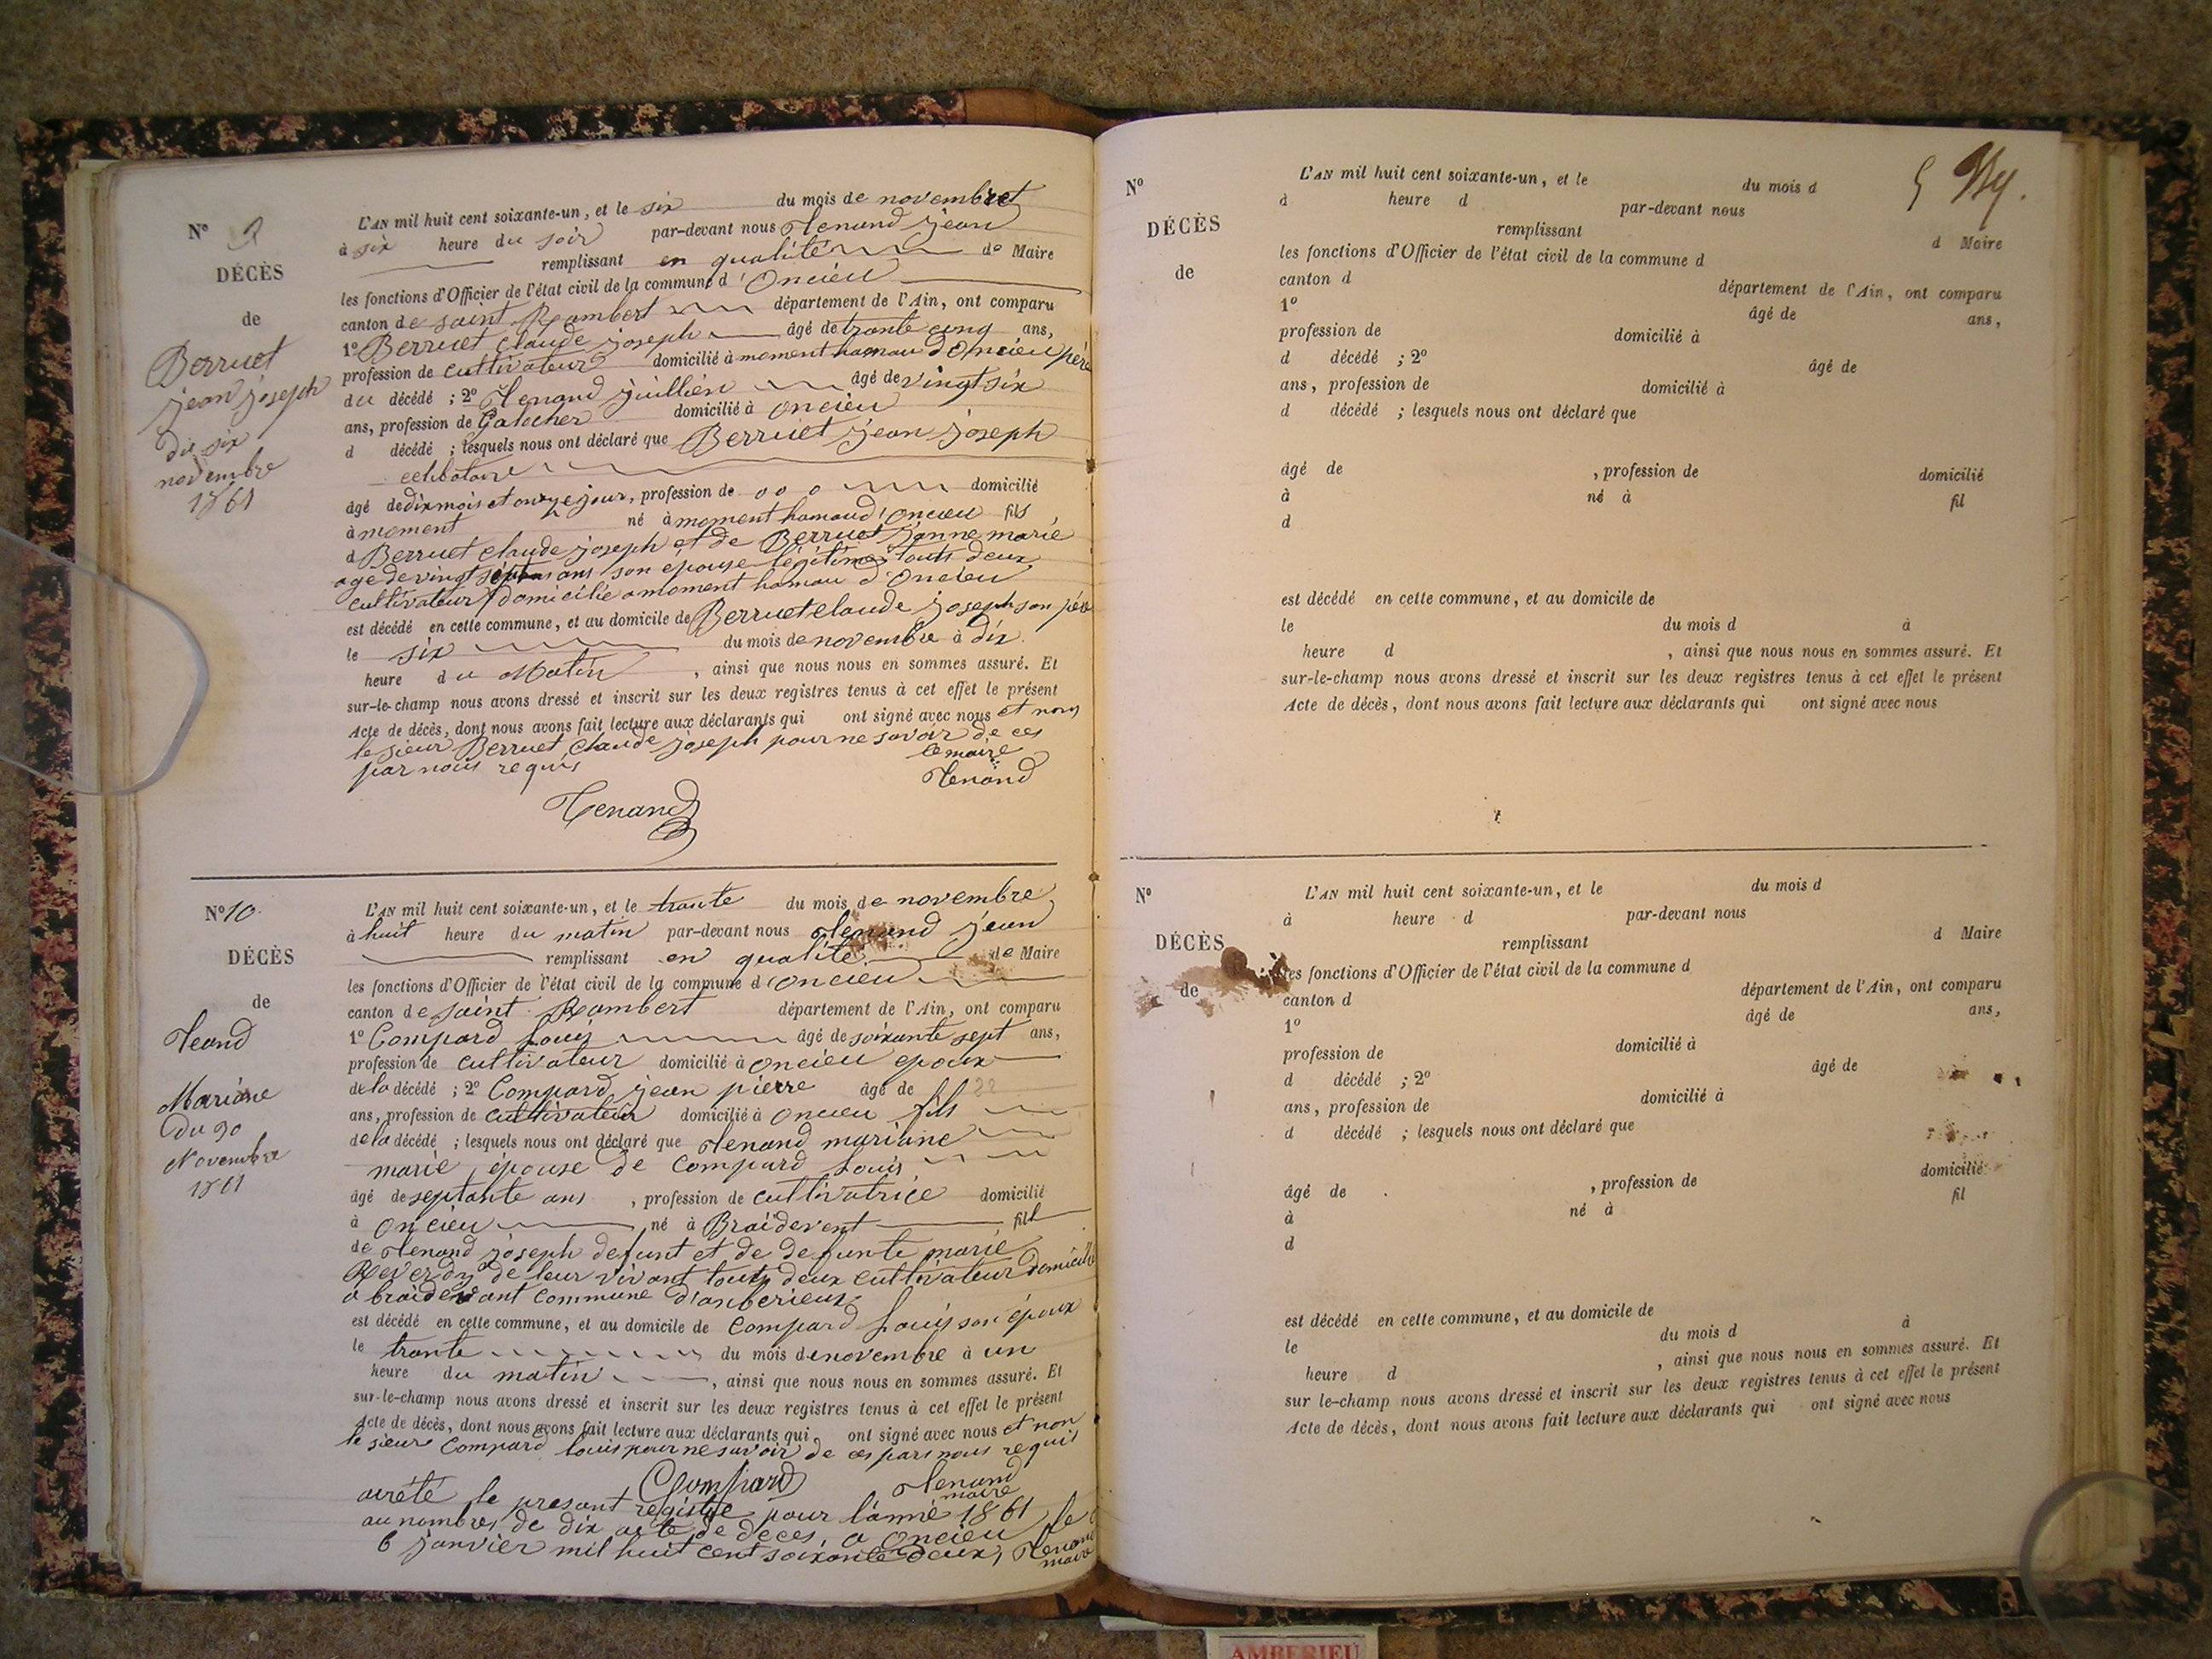 Nº 9
DÉCÈS
de
Berruet
jean joseph
du six
novembre
1861
L'AN mil huit cent soixante-un, et le six du mois de novembre
à six heure du soir par-devant nous Tenand jean
remplissant en qualité de Maire
les fonctions d'Officier de l'état civil de la commune d'Oncieu
canton de saint Rambert département de l'Ain, ont comparu
1º Berruet claude joseph âgé de trante cinq ans,
profession de cultivateur domicilié à moment hamau d'Oncieu père
du décédé ; 2º Tenand juillien âgé de vingt six
ans, profession de Galocher domicilié à oncieu
d décédé ; lesquels nous ont déclaré que Berruet jean joseph
celibataire
âgé de dix mois et onze jour, profession de o o o domicilié
à moment né à moment hamaud'oncieu fils
d Berruet claude joseph et de Berruet janne marie
age de vingt ans son épouse légitime touts deux
cultivateur domicilié a moment hamau d'Oncieu
est décédé en cette commune, et au domicile de Berruet claude joseph son père
le six du mois de novembre à dix
heure du Matin , ainsi que nous nous en sommes assuré. Et
sur-le-champ nous avons dressé et inscrit sur les deux registres tenus à cet effet le présent
Acte de décès, dont nous avons fait lecture aux déclarants qui ont signé avec nous et non
le sieur Berruet Claude joseph pour ne savoir de ces
par nous requis
le maire
Tenand
Tenand
Nº 10
DÉCÈS
de
Teand
Mariane
du 30
Novembre
1861
L'AN mil huit cent soixante-un, et le trante du mois de novembre
à huit heure du matin par-devant nous Tenand jean
remplissant en qualité de Maire
les fonctions d'Officier de l'état civil de la commune d'oncieu
canton de saint Rambert département de l'Ain, ont comparu
1º Compard Louis âgé de soixante sept ans,
profession de cultivateur domicilié à oncieu epoux
de la décédé ; 2º Compard jean pierre âgé de
ans, profession de cultivateur domicilié à oncieu fils
de la décédé ; lesquels nous ont déclaré que Tenand mariane
marie épouse de compard Louis
âgé de septante ans , profession de cultivatrice domicilié
à oncieu né à Braidevent fill
de Tenand joseph defunt et de defunte marie
Reverdy de leur vivant touts deux cultivateur domicilié
a braidevant commune d'anberieux
est décédé en cette commune, et au domicile de Compard Louis son époux
le trante du mois de novembre à un
heure du matin , ainsi que nous nous en sommes assuré. Et
sur-le-champ nous avons dressé et inscrit sur les deux registres tenus à cet effet le présent
Acte de décès, dont nous avons fait lecture aux déclarants qui ont signé avec nous et non
le sieur Compard louis pour ne savoir de ces par nous requis
Compard Tenand
maire
arété le presant registre pour l'anné 1861
au nombre de dix acte de deces, a Oncieu le
6 janvier mil huit cent soixante deux, Tenand
maire
5
Nº
DÉCÈS
de
L'AN mil huit cent soixante-un, et le du mois d
à heure d par-devant nous
remplissant d Maire
les fonctions d'Officier de l'état civil de la commune d
canton d département de l'Ain, ont comparu
1º âgé de ans,
profession de domicilié à
d décédé ; 2º âgé de
ans, profession de domicilié à
d décédé ; lesquels nous ont déclaré que
âgé de , profession de domicilié
à né à fil
d
est décédé en cette commune, et au domicile de
le du mois d à
heure d , ainsi que nous nous en sommes assuré. Et
sur-le-champ nous avons dressé et inscrit sur les deux registres tenus à cet effet le présent
Acte de décès, dont nous avons fait lecture aux déclarants qui ont signé avec nous
Nº
DÉCÈS
de
L'AN mil huit cent soixante-un, et le du mois d
à heure d par-devant nous
remplissant d Maire
les fonctions d'Officier de l'état civil de la commune d
canton d département de l'Ain, ont comparu
1º âgé de ans,
profession de domicilié à
d décédé ; 2º âgé de
ans, profession de domicilié à
d décédé ; lesquels nous ont déclaré que
âgé de , profession de domicilié
à né à fil
d
est décédé en cette commune, et au domicile de
le du mois d à
heure d , ainsi que nous nous en sommes assuré. Et
sur le-champ nous avons dressé et inscrit sur les deux registres tenus à cet effet le présent
Acte de décès, dont nous avons fait lecture aux déclarants qui ont signé avec nous
AMBERIEU